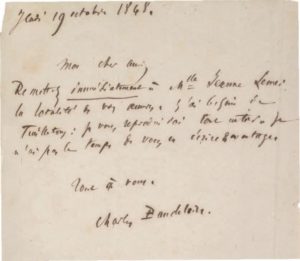 Jeudi 19 octobre 1848.
Mon cher ami,
Remettez immédiatement à Mlle Jeanne Lemer
la totalité de vos J'ai besoin de
je vous tout je
n'ai pas le temps de vous en écrire davantage.
Tout à vous.
Charles Baudelaire.